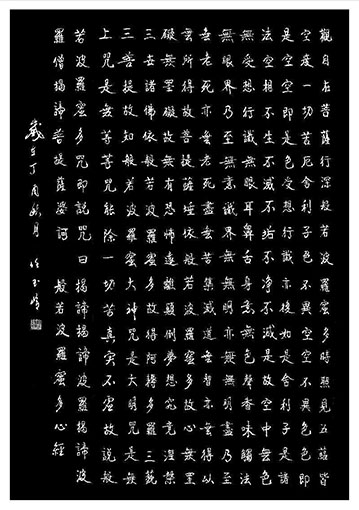 觀自在菩薩行深般若波羅蜜多時照見五蘊皆
空度一切苦厄舍利子色不異空空不異色色即
是空空即是色受想行識亦復如是舍利子是諸
法空相不生不滅不垢不淨不增不減是故空中無色
無受想行識無眼耳鼻舌身意無色聲香味觸法
無眼界乃至無意識界無無明亦無無明盡乃至
無老死亦無老死盡無苦集滅道無智亦無得以
無所得故菩提薩埵依般若波羅蜜多故心無罣
礙無罣礙故無有恐怖遠離顛倒夢想究竟涅槃
三世諸佛依般若波羅蜜多故得阿耨多羅三藐
三菩提故知般若波羅蜜大神咒是大明咒是無
上咒是無等等咒能除一切苦真實不虛故說般
若波羅蜜多咒即說咒曰揭諦揭諦波羅揭諦波
羅僧揭諦菩提薩婆訶 般若波羅蜜多心經
歲在丁酉月